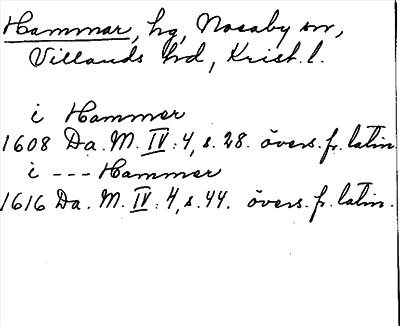 Hammar, hg, Nosaby sn,
Villands hd, Krist. l.
i Hammer
1608 Da. M. IV: 4, s. 28. övers. fr. latin
i --- Hammer
1616 Da. M. IV: 4, s. 44. övers. fr. latin.